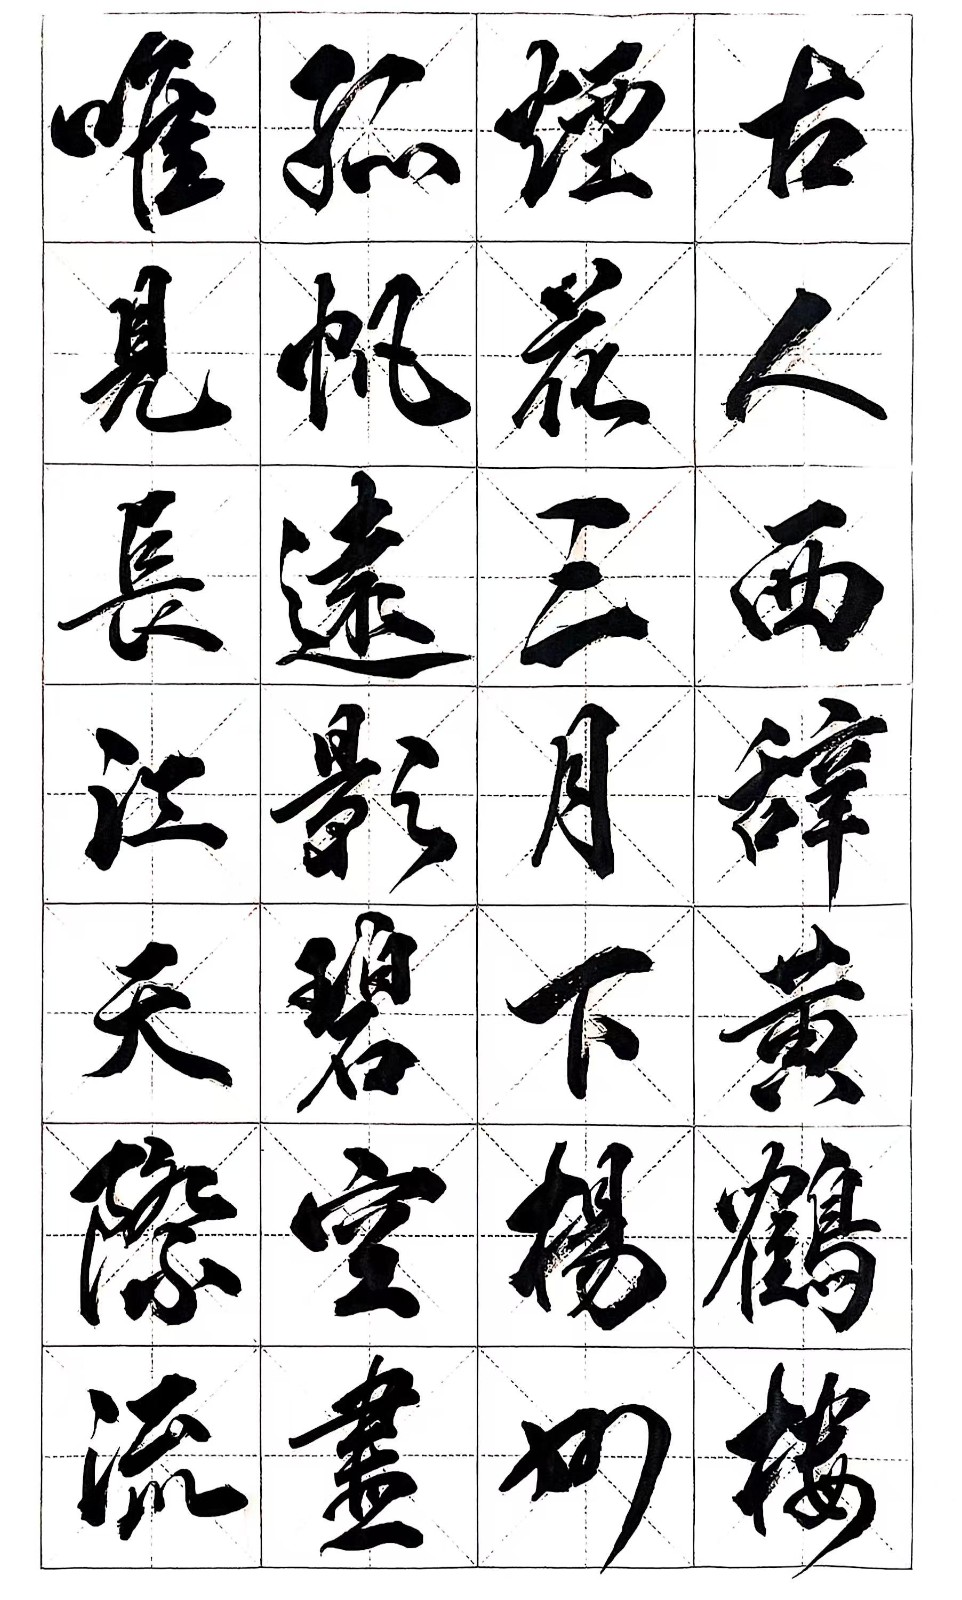 古人西辞黄鶴楼
煙花三月下揚州
孤帆遠影碧空盡
唯見長江天際流